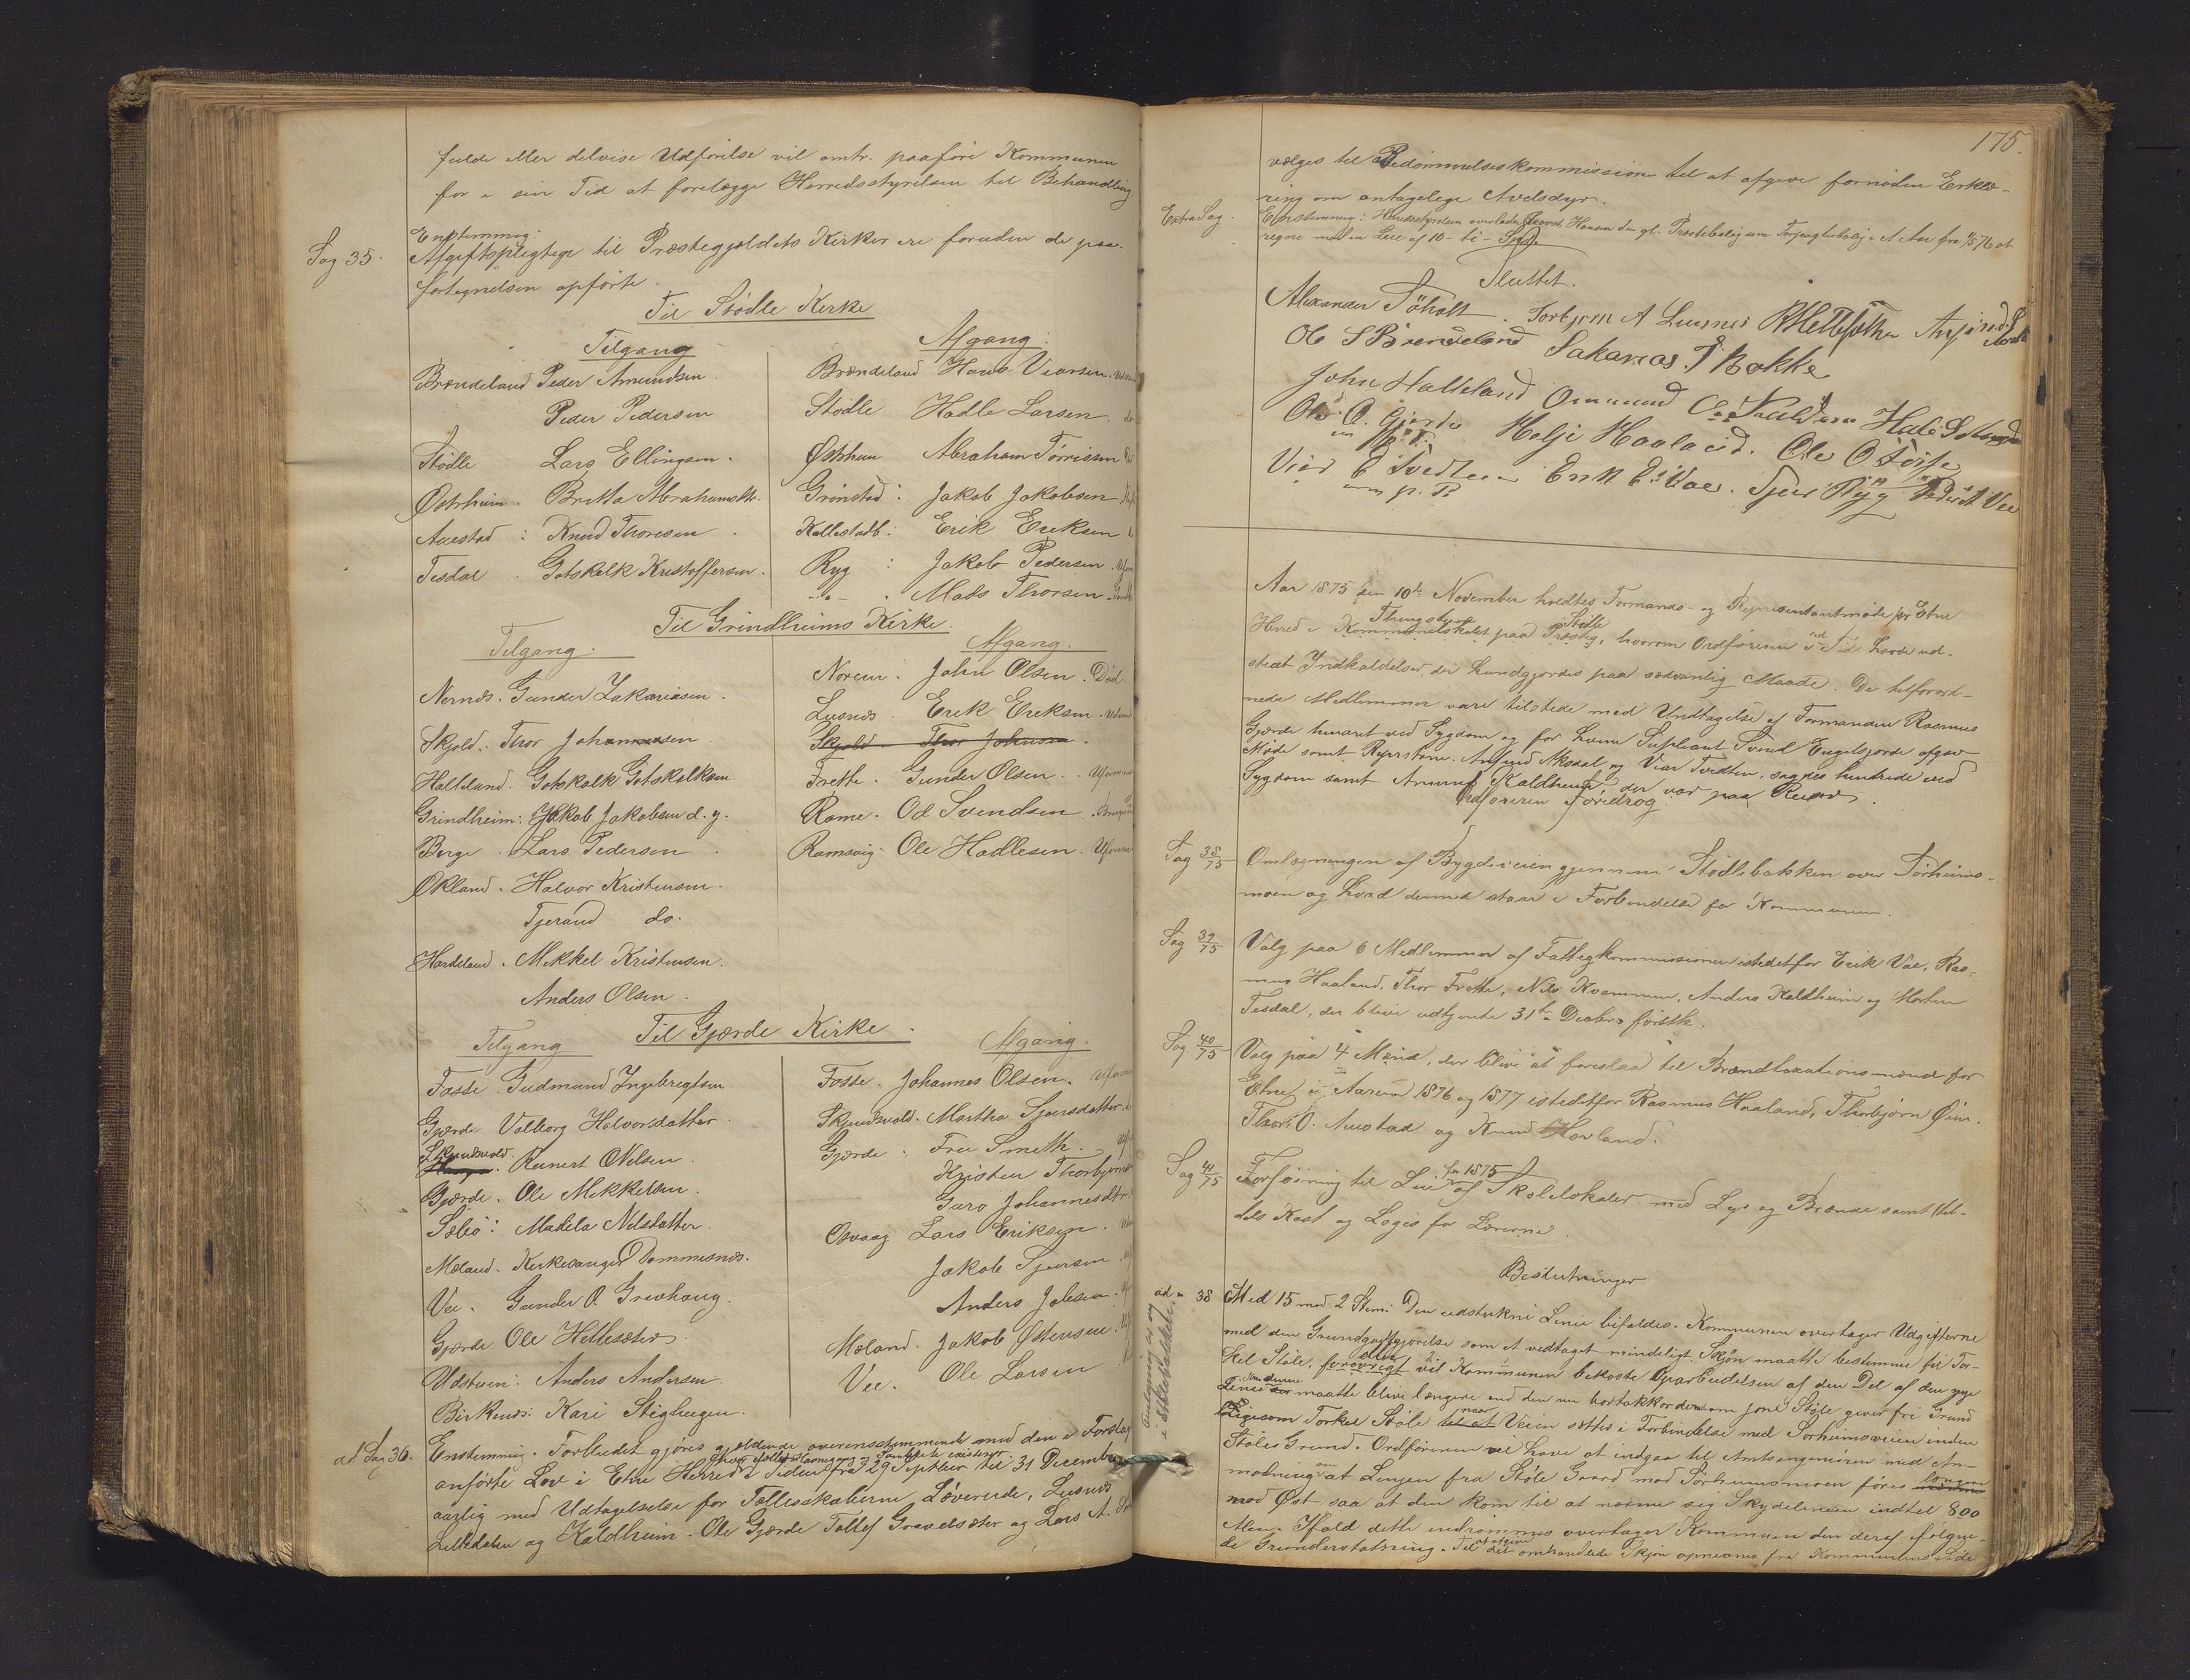 fulde eller delvise Udførelse vil omtr. paaføre Kommunen
for i sin Tid at forelægge Herredsstyrelsen til Behandling
Sag 35.
Enstemmig:
Afgiftspligtige til Præstegjeldets Kirker ere foruden de paa
fortegnelsen opførte.
Til Stødle Kirke
Tilgang
Brændeland Peder Amundsen
Peder Pedersen
Stødle Lars Ellingsen.
Østrheim. Britta Abrahamsdtr.
Austad : Knud Thoresen
Tesdal. Gotskalk Kristoffersen.
Afgang:
Brændeland Hans Viarsen.
Stødle Hadle Larsen.
Østrheim Abraham Tørrissen
Grønstad: Jakob Jakobsen
Kallestadb: Erik Eriksen
Ryg : Jakob Pedersen.
-"- . Mads Thorsen.
Til Grindheims Kirke.
Tilgang.
Nernæs. Gunder Zakariasen.
Skjold. Thor Johannessen
Halleland. Gotskalk Gotskalksen.
Grindheim: Jakob Jakobsen d. y.
Berge. Lars Pedersen.
Økland. Halvor Kristensen.
Tjerand do.
Hardeland. Mikkel Kristensen.
Anders Olsen.
Afgang.
Norem. John Olsen. Død.
Lusnæs. Erik Eriksen.
Skjold. Thor Johnsen.
Frette. Gunder Olsen.
Rame. Od Svendsen
Ramsvig. Ole Hadlesen.
Til Gjærde Kirke.
Tilgang
Fosse. Gudmund Ingebregtsen.
Gjærde Valborg Halvorsdatter.
Skjundsvold.
Reinert Nilsen.
Gjærde. Ole Mikkelsen.
Sæbø: Madela Nilsdatter.
Mæland. Kirkesanger Dommesnæs.
Vee. Gunder O. Grevhaug.
Gjærde Ole Hettesæter.
Udstuen: Anders Andersen.
Birkenæs: Kari Stighagen.
Afgang.
Fosse. Johannes Olsen.
Skjundsvold. Martha Sjursdatter.
Gjærde. Fru Smith.
Kristen Thorbjørns
Guro Johannesdtr.
Osvaag Lars Eriksen.
Jakob Sjursen
Anders Jolesen.
Mæland. Jakob Østensen.
Vee. Ole Larsen
ad Sag 36.
Enstemmig. Forbudet gjøres gjældende overensstemmende med den i Forslag
anførte Lov i Etne Herred i Tiden fra 29 Septbr til 31 December
aarlig med Udtagelse for Fællesskaberne Løvereide, Lusnæs
Litledalen og Kaldheim. Ole Gjærde Tollef Gravelsæter og Lars A.
175.
vælges til Bedømmelseskommission til at afgive fornøden Erklæ-
ring om antagelige Avlsdyr.
Extra Sag.
Enstemmig: Herredsstyrelsen overlader Hansen den gl. Præstebolig
regne mod en Leie af 10 - ti - Spd.
Sluttet.
Alexander Tøholt. Torbjørn A Lusnes
Ole S Brendeland Sakarias J Bokke
John Halleland Ommund
Ole O. Gjerde Helje Haaland. Ole O Fosse
m. p. P.
Viar Tvedten Erik Vae. Sjur Ryg Peder A Vee
m. p. P.
Aar 1875 den 10de November holdtes Formands- og Repræsentantmøde for Etne
Thingstuen Stødle
Herred i Kommunelokalet paa Præsteg., hvorom Ordføreren i ret Tid havde ud-
stedt Indkaldelser, der kundgjordes paa sædvanlig Maade. De tilforord-
nede Medlemmer vare tilstede med Undtagelse af Formanden Rasmus
Gjærde hindret ved Sygdom og for hvem Supleant Svend Engelsgjerde afgav
Møde samt Repræstanm. Amund Aksdal og Viar Tvedten, sagdes hindrede ved
Sygdom samt Amund Kaldheim der var paa Reiser.
Ordføreren foredrog
Sag 38/75
Omlægningen af Bygdeveien gjennem Stødlebakken over Sørheims-
moen og hvad dermed staar i Forbindelse for Kommunen.
Sag 39/75
Valg paa 6 Medlemmer af Fattigkommissionen istedetfor Erik Vae, Ras-
mus Haaland, Thor Frette, Nils Kvammen, Anders Kaldheim og Morten
Tesdal, der blive udtjente 31te Decbr førstk.
Sag 40/75
Valg paa 4 Mænd, der blive at foreslaa til Brandtaxationsmænd for
Etne i Aarene 1876 og 1877 istedetfor Rasmus Haaland, Thorbjørn Øien.
Thor O. Austad og Knud Hovland.
Sag 41/75
for 1875
Forføining til Leie af Skolelokaler med Lys og Brænde samt til-
dels Kost og Logis for Lærerne
Beslutninger
ad " 38
Med 15 mod 2 Stem: Den udstukne Linie bifaldes. Kommunen overtager Udgifterne
med den Grundgodtgjørelse som et vedtaget mindeligt Skjøn maatte bestemme til Tor-
kel Støle, forøvrigt vil Kommunen bekoste Oparbeidelsen af den Del af den nye
Linie som denne maatte blive længere end den nu bortakkorderede om Jone Støle giver fri Grund
Ligesom Torkel Støle naar Veien sættes i Forbindelse med Sørheimsveien inden
Støles Grund. Ordføreren vil have at indgaa til Amtsingeniøren med An-
modning om at Linjen fra Støle Gaard mod Sørheimsmoen føres længere
mod Øst saa at den kom til at nærme sig Skydelinien indtil 800
Alen. Ifald dette indrømmes overtager Kommunen den deraf følgen-
de Grunderstatning. Til at afgive det omhandlede Skjøn opnævnes fra Kommunens Side